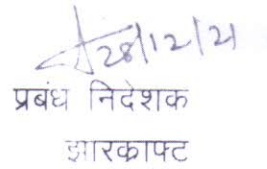 28/12/21
प्रबंध निदेशक
झारक्राफ्ट